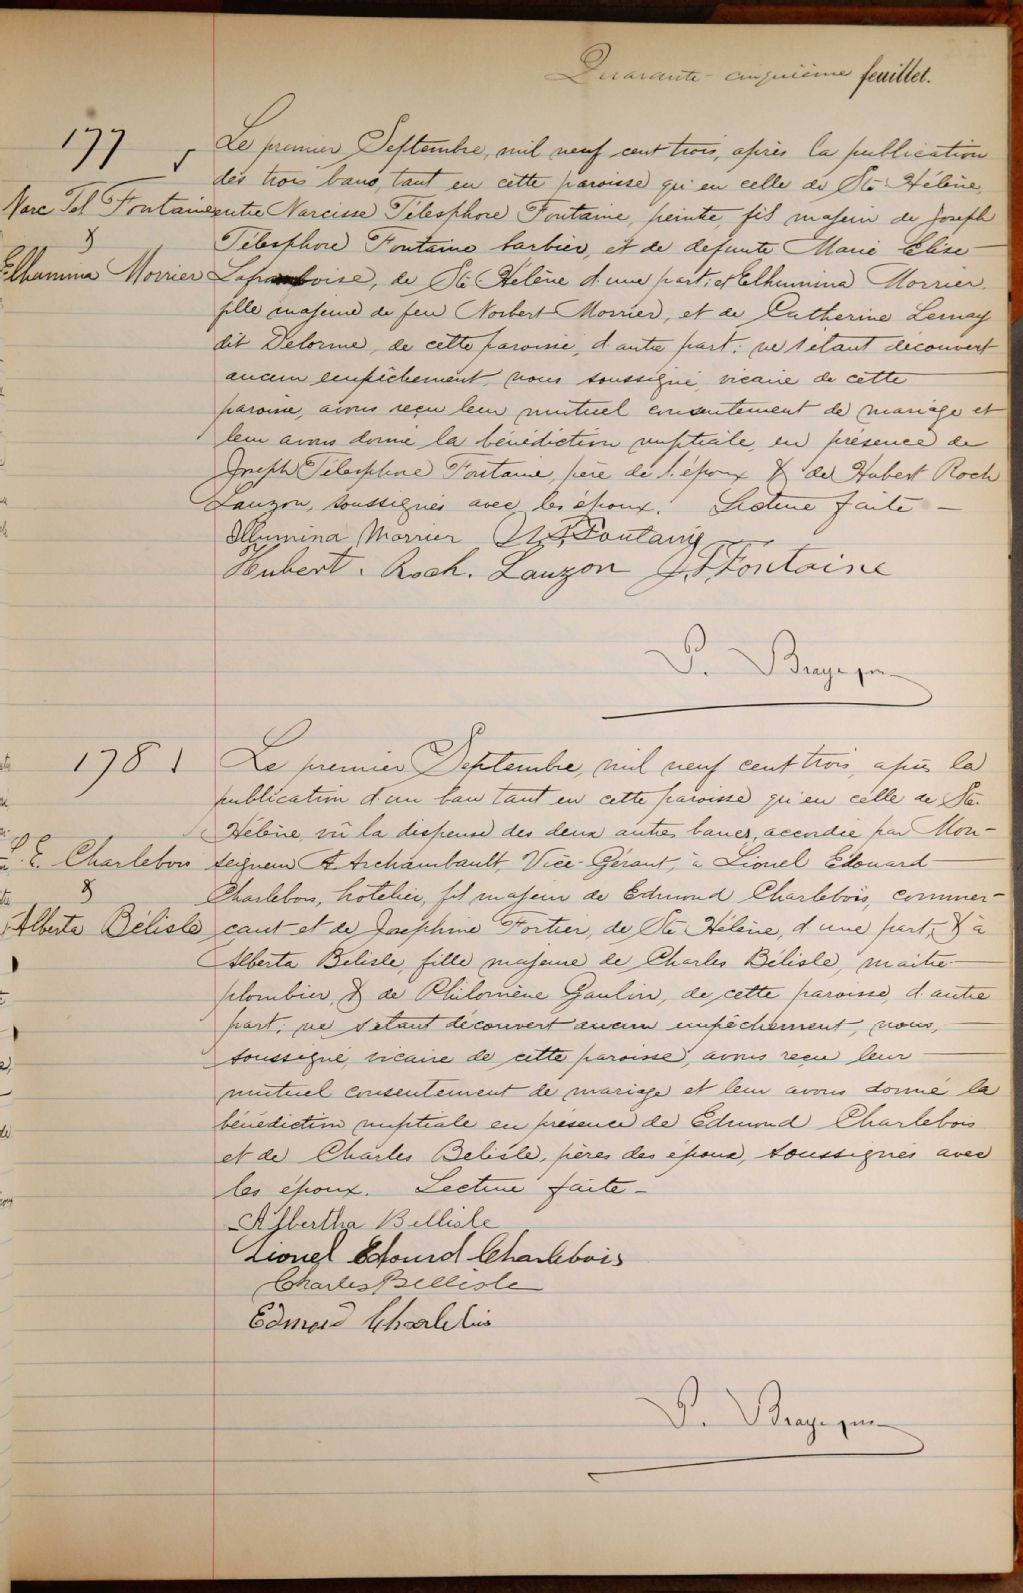 Quarante-cinquième feuillet.
177
Narc Tel Fontaine
&
Elhumina Morrier
Le premier Septembre, mil neuf cent trois, après la publication
des trois bans, tant en cette paroisse qu'en celle de Ste Hélène,
entre Narcisse Télesphore Fontaine, peintre, fils majeur de Joseph
Télesphore Fontaine barbier, et de defunte Marie Elise
Laframboise, de Ste Hélène d'une part; et Elhumina Morrier,
fille majeure de feu Norbert Morrier, et de Catherine Lemay
dit Delorme, de cette paroisse, d'autre part; ne s'étant decouvert
aucun empêchement, nous soussigné, vicaire de cette
paroisse, avons reçu leur mutuel consentement de mariage et
leur avons donné la bénédiction nuptiale, en présence de
Joseph Télesphore Fontaine, père de l'époux & de Hubert Roch
Lauzon, soussignés avec les époux. Lecture faite -
Illumina Morrier N.T. Fontaine
Hubert. Roch. Lauzon J.T. Fontaine
P. Braye
178
L. E. Charlebois
&
Alberta Bélisle
Le premier Septembre, mil neuf cent trois, après la
publication d'un ban tant en cette paroisse qu'en celle de Ste
Hélène, vû la dispense des deux autres bancs, accordée par Mon-
seigneur A Archambault, Vice-Gérant, à Lionel Edouard
Charlebois, hotelier, fils majeur de Edmond Charlebois, commer-
çant et de Josephine Fortier, de Ste Hélène, d'une part, & à
Alberta Bélisle, fille majeure de Charles Bélisle, maître
plombier, & de Philomène Gaulin, de cette paroisse, d'autre
part; ne s'étant découvert aucun empêchement, nous,
soussigné, vicaire de cette paroisse, avons reçu leur
mutuel consentement de mariage et leur avons donné la
bénédiction nuptiale en présence de Edmond Charlebois
et de Charles Belisle, pères des époux, soussignés avec
les époux. Lecture faite -
Albertha Bellisle
Lionel Edourd Charlebois
Charles Bellisle
Edmond Charlebois
P. Braye